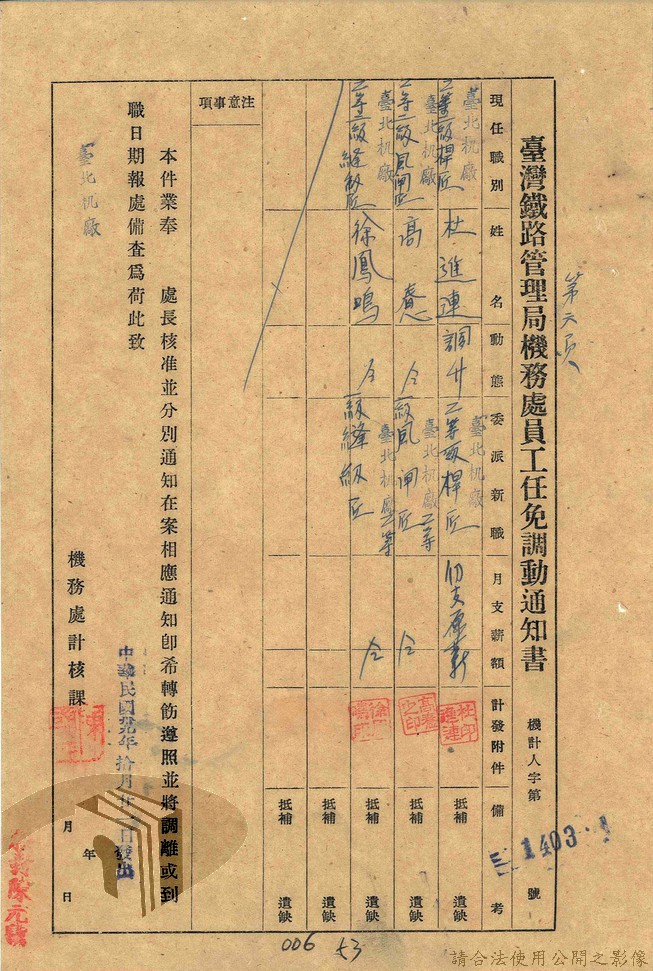 第六頁
臺灣鐵路管理局機務處員工任免調動通知書
機計人字第 1403 號
現任職別
姓名
動態
委派新職
月支薪額
計發附件
備考
臺北机廠
二等二級桿匠
杜進連
調升
臺北机廠
二等一級桿匠
仍支原薪
抵補 遺缺
臺北机廠
二等二級風閘匠
高
仝
臺北机廠二等
一級風閘匠
仝
抵補 遺缺
臺北机廠
二等二級縫級匠
徐鳳鳴
仝
臺北机廠二等
一級縫級匠
仝
抵補 遺缺
抵補 遺缺
抵補 遺缺
注意事項
本件業奉 處長核准並分別通知在案相應通知卽希轉飭遵照並將調離或到
職日期報處備查爲荷此致
臺北机廠
機務處計核課
中華民國 年拾月廿 日發出
年 月 日
006
53
請合法使用公開之影像